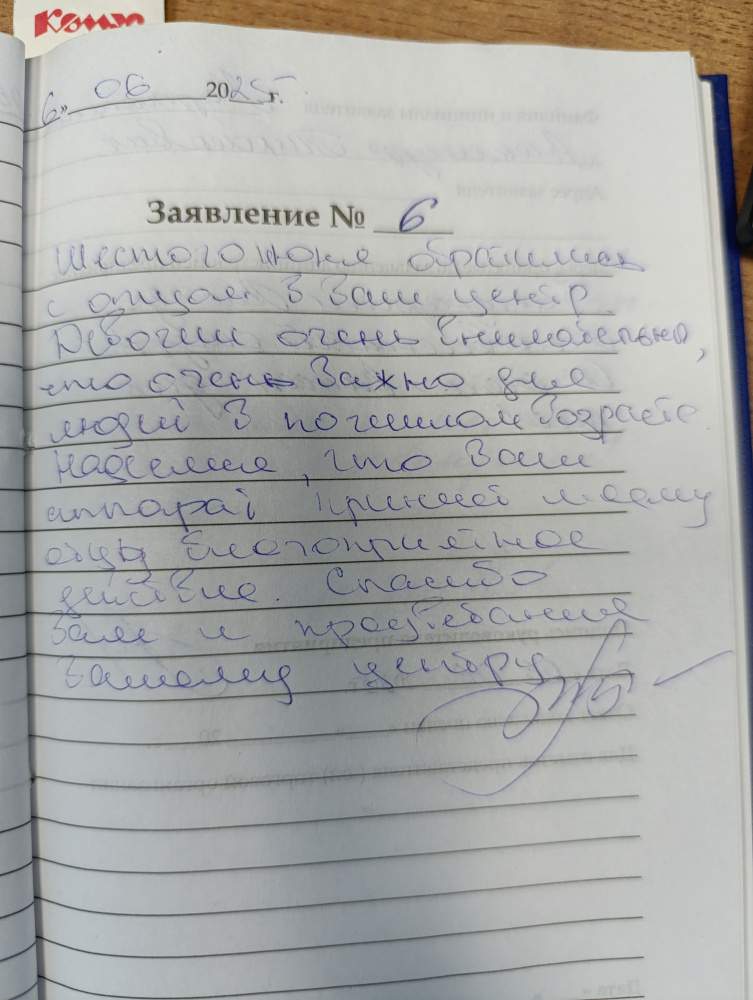 Комус
6» 06 2025 г.
Заявление № 6
Шестого июня обратились
с отцом в Ваш центр.
Девочки очень внимательно,
что очень важно для
людей в пожилом возрасте.
Надеемся, что Ваш
аппарат принесет моему
отцу благоприятное
действие. Спасибо
Вам и процветание
Вашему центру